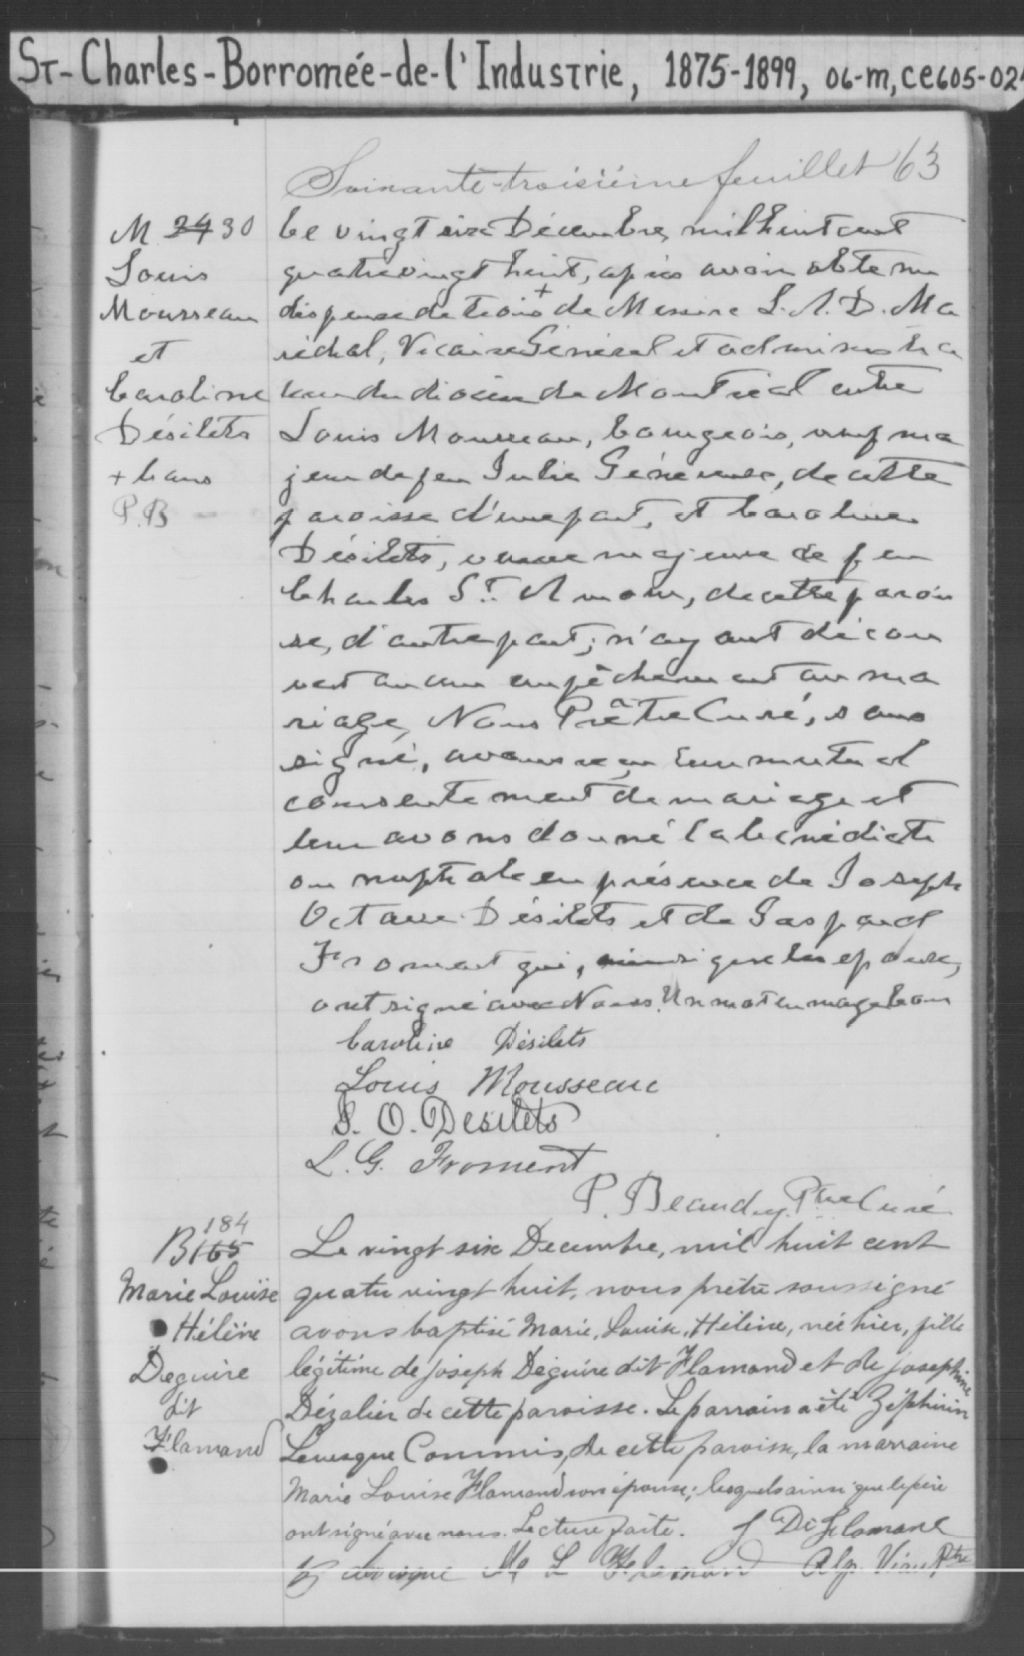 St-Charles-Borromée-de-l'Industrie, 1875-1899, 06-m, ce605-02
Soixante-troisième feuillet 63
M 24 30
Louis
Mousseau
et
Caroline
Désilets
+ bans
P.B
Le vingt six Décembre, mil huit cent
quatre vingt huit, après avoir obtenu
dispense de trois + de Messire L. A. D. Ma
réchal, Vicaire Général et administra
teur du diocèse de Montréal entre
Louis Mousseau, bourgeois, veuf ma
jeur de feu Julie Généreux, de cette
paroisse d'une part, et Caroline
Désilets, veuve majeure de feu
Charles St. Amour, de cette parois
se, d'autre part; n'ayant décou
vert aucun empêchement au ma
riage, Nous Prêtre Curé, sous
signé, avons reçu leur mutuel
consentement de mariage et
leur avons donné la bénédicti
on nuptiale en présence de Joseph
Octave Désilets et de Gaspard
Froment qui, ainsi que les époux,
ont signé avec Nous. Un mot en marge bon
Caroline Désilets
Louis Mousseau
J. O. Desilets
L. G. Froment
P. Beaudry Ptre Curé
184
B 165
Marie Louise
Hélène
Deguire
dit
Flamand
Le vingt six Decembre, mil huit cent
quatre vingt huit, nous prêtre soussigné
avons baptisé Marie, Louise, Hélène, née hier, fille
légitime de Joseph Deguire dit Flamand et de Josephine
Dézalier de cette paroisse. Le parrain a été Zéphirin
Levesque Commis, de cette paroisse, la marraine
Marie Louise Flamand son épouse; lesquels ainsi que le père
ont signé avec nous. Lecture faite. J Dc Flamand
Z Levesque M L Flamand Alp. Ptre